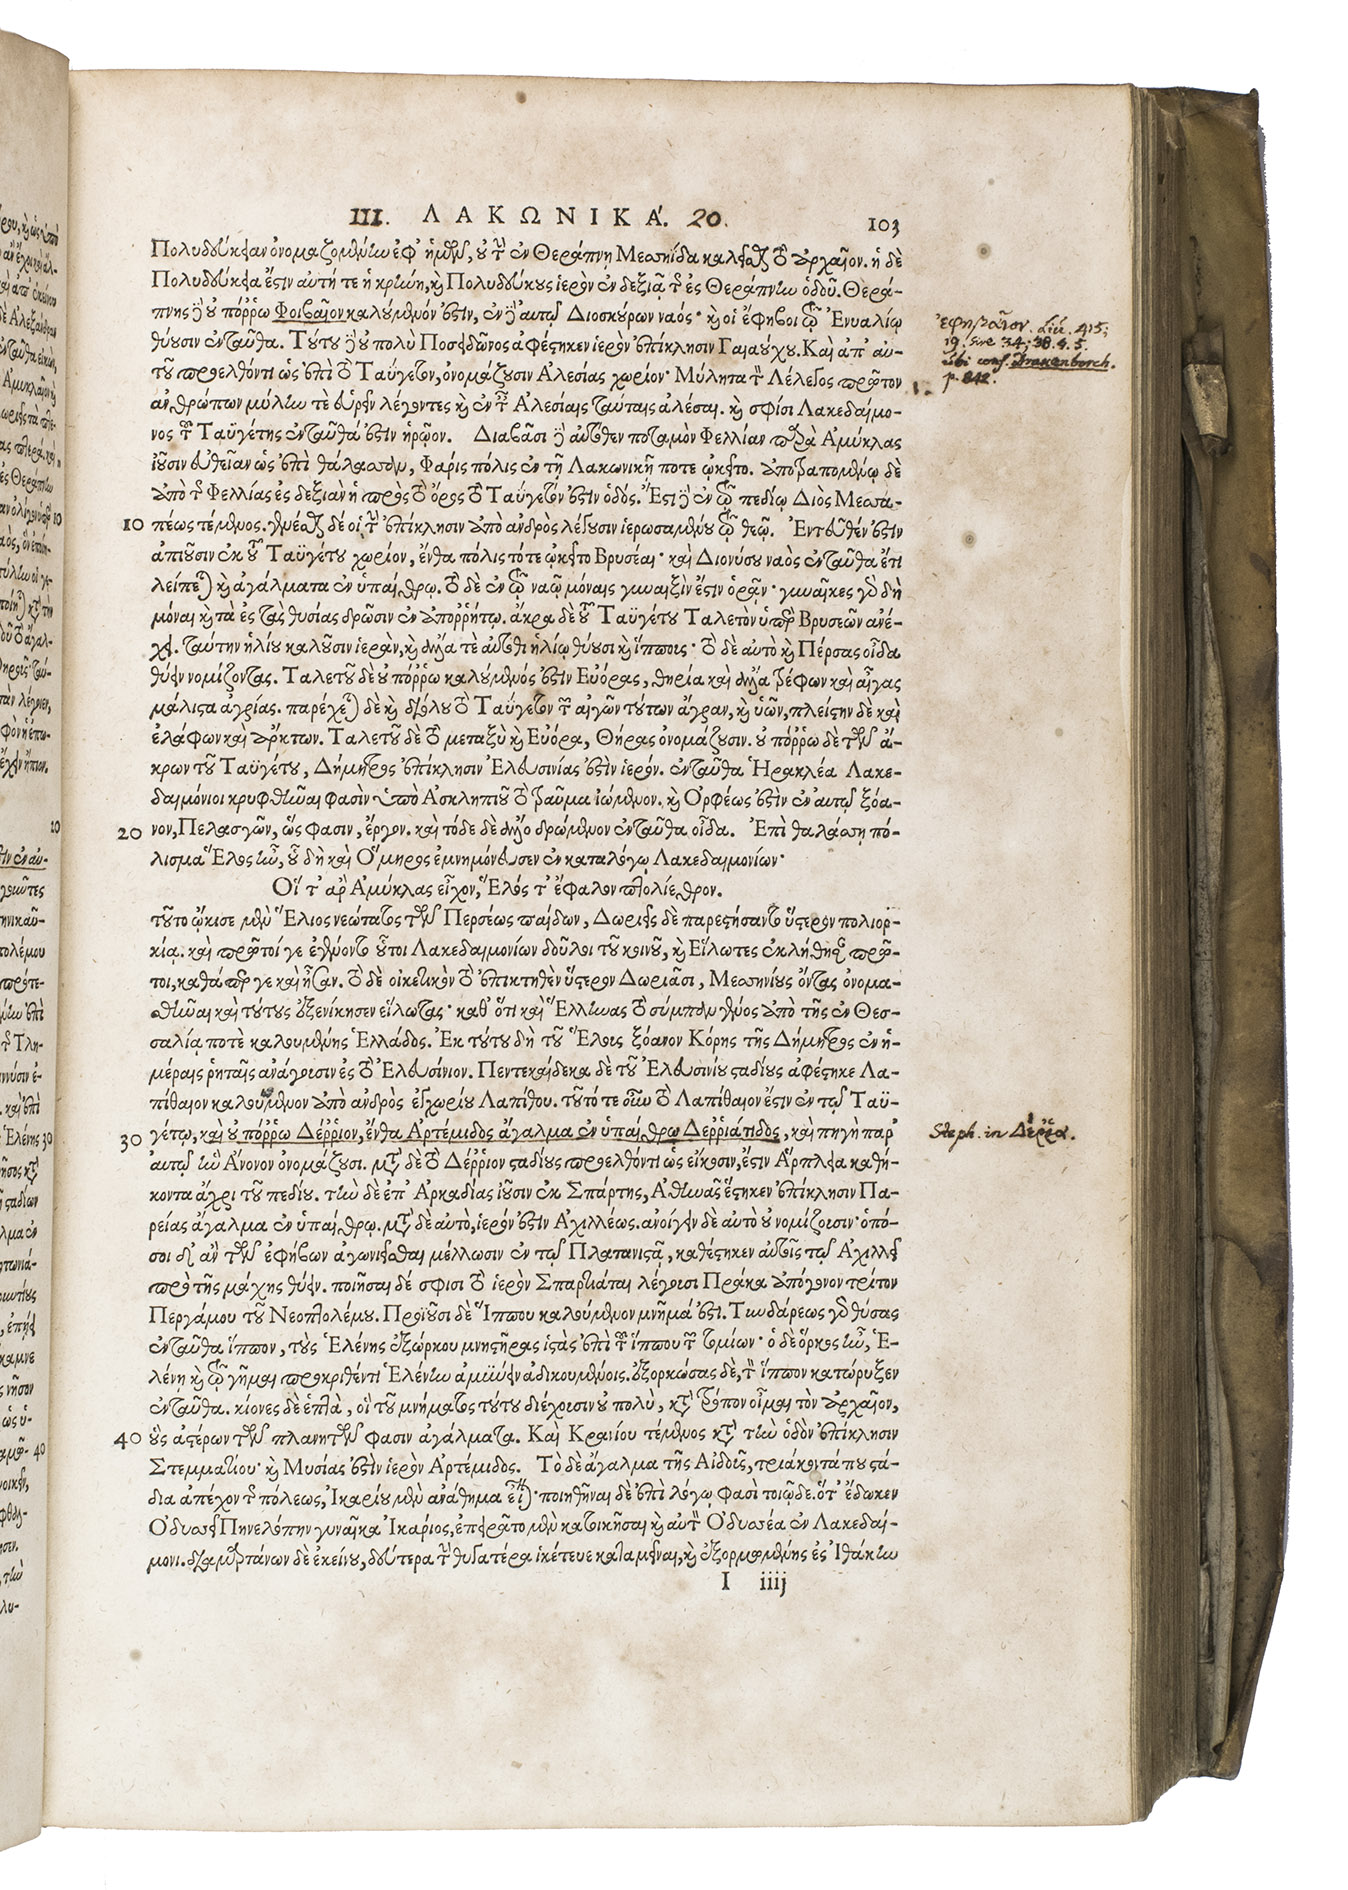 III. ΛΑΚΩΝΙΚΆ. 20. 103
Πολυδεύκειαν ὀνομαζομένην ἐφ' ἡμῶν, οὐ τὴν ἐν Θεράπνῃ Μεσσηίδα καλεῖσθαι τὸ ἀρχαῖον. ἡ δὲ
Πολυδεύκεια ἔστιν αὐτή τε ἡ κρήνη, καὶ Πολυδεύκους ἱερὸν ἐν δεξιᾷ τῆς ἐς Θεράπνην ὁδοῦ. Θερά-
πνης δὲ οὐ πόρρω Φοιβαῖον καλούμενόν ἐστιν, ἐν δὲ αὐτῷ Διοσκούρων ναός· καὶ οἱ ἔφηβοι τῷ Ἐνυαλίῳ
θύουσιν ἐνταῦθα. Τούτου δὲ οὐ πολὺ Ποσειδῶνος ἀφέστηκεν ἱερὸν ἐπίκλησιν Γαιαούχου. Καὶ ἀπ' αὐ-
τοῦ προελθόντι ὡς ἐπὶ τὸ Ταΰγετον, ὀνομάζουσιν Ἀλεσίας χωρίον· Μύλητα τὸν Λέλεγος πρῶτον
ἀνθρώπων μύλην τε εὑρεῖν λέγοντες καὶ ἐν ταῖς Ἀλεσίαις ταύταις ἀλέσαι. καὶ σφίσι Λακεδαίμο-
νος τῆς Ταϋγέτης ἐνταῦθά ἐστιν ἡρῷον. Διαβᾶσι δὲ αὐτόθεν ποταμὸν Φελλίαν παρὰ Ἀμύκλας
ἰοῦσιν εὐθεῖαν ὡς ἐπὶ θάλασσαν, Φάρις πόλις ἐν τῇ Λακωνικῇ ποτε ᾠκεῖτο. ἀποτραπομένῳ δὲ
ἀπὸ τῆς Φελλίας ἐς δεξιὰν ἡ πρὸς τὸ ὄρος τὸ Ταΰγετόν ἐστιν ὁδός. Ἔστι δὲ ἐν τῷ πεδίῳ Διὸς Μεσσα-
10 πέως τέμενος. γενέσθαι δέ οἱ τὴν ἐπίκλησιν ἀπὸ ἀνδρὸς λέγουσιν ἱερωσαμένου τῷ θεῷ. Ἐντεῦθέν ἐστιν
ἀπιοῦσιν ἐκ τοῦ Ταϋγέτου χωρίον, ἔνθα πόλις τότε ᾠκεῖτο Βρυσέαι· καὶ Διονύσου ναὸς ἐνταῦθα ἔτι
λείπεται καὶ ἀγάλματα ἐν ὑπαίθρῳ. τὸ δὲ ἐν τῷ ναῷ μόναις γυναιξὶν ἔστιν ὁρᾶν· γυναῖκες γὰρ δὴ
μόναι καὶ τὰ ἐς τὰς θυσίας δρῶσιν ἐν ἀπορρήτῳ. ἄκρα δὲ τοῦ Ταϋγέτου Ταλετὸν ὑπὲρ Βρυσεῶν ἀνέ-
χει. ταύτην ἡλίου καλοῦσιν ἱερὰν, καὶ ἄλλα τε αὐτόθι ἡλίῳ θύουσι καὶ ἵππους· τὸ δὲ αὐτὸ καὶ Πέρσας οἶδα
θύειν νομίζοντας. Ταλετοῦ δὲ οὐ πόρρω καλούμενός ἐστιν Εὐόρας, θηρία καὶ ἄλλα τρέφων καὶ αἶγας
μάλιστα ἀγρίας. παρέχεται δὲ καὶ δι' ὅλου τὸ Ταΰγετον τῶν αἰγῶν τούτων ἄγραν, καὶ ὑῶν, πλείστην δὲ καὶ
ἐλάφων καὶ ἄρκτων. Ταλετοῦ δὲ τὸ μεταξὺ καὶ Εὐόρα, Θήρας ὀνομάζουσιν. οὐ πόρρω δὲ τῶν ἄ-
κρων τοῦ Ταϋγέτου, Δήμητρος ἐπίκλησιν Ἐλευσινίας ἐστὶν ἱερόν. ἐνταῦθα Ἡρακλέα Λακε-
δαιμόνιοι κρυφθῆναι φασὶν ὑπὸ Ἀσκληπιοῦ τὸ τραῦμα ἰώμενον. καὶ Ὀρφέως ἐστὶν ἐν αὐτῷ ξόα-
20 νον, Πελασγῶν, ὥς φασιν, ἔργον. καὶ τόδε δὲ ἄλλο δρώμενον ἐνταῦθα οἶδα. Ἐπὶ θαλάσσῃ πό-
λισμα Ἕλος ἦν, οὗ δὴ καὶ Ὅμηρος ἐμνημόνευσεν ἐν καταλόγῳ Λακεδαιμονίων·
Οἵ τ' ἄρ' Ἀμύκλας εἶχον, Ἕλος τ' ἔφαλον πτολίεθρον.
τοῦτο ᾤκισε μὲν Ἕλιος νεώτατος τῶν Περσέως παίδων, Δωριεῖς δὲ παρεστήσαντο ὕστερον πολιορ-
κίᾳ. καὶ πρῶτοί γε ἐγένοντο οὗτοι Λακεδαιμονίων δοῦλοι τοῦ κοινοῦ, καὶ Εἵλωτες ἐκλήθησαν πρῶ-
τοι, καθάπερ γε καὶ ἦσαν. τὸ δὲ οἰκετικὸν τὸ ἐπικτηθὲν ὕστερον Δωριᾶσι, Μεσσηνίους ὄντας ὀνομα-
σθῆναι καὶ τούτους ἐξενίκησεν εἵλωτας· καθ' ὅτι καὶ Ἕλληνας τὸ σύμπαν γένος ἀπὸ τῆς ἐν Θεσ-
σαλίᾳ ποτὲ καλουμένης Ἑλλάδος. Ἐκ τούτου δὴ τοῦ Ἕλους ξόανον Κόρης τῆς Δήμητρος ἐν ἡ-
μέραις ῥηταῖς ἀνάγουσιν ἐς τὸ Ἐλευσίνιον. Πεντεκαίδεκα δὲ τοῦ Ἐλευσινίου σταδίους ἀφέστηκε Λα-
πίθαιον καλούμενον ἀπὸ ἀνδρὸς ἐγχωρίου Λαπίθου. τοῦτό τε οὖν τὸ Λαπίθαιον ἔστιν ἐν τῷ Ταϋ-
30 γέτῳ, καὶ οὐ πόρρω Δέρριον, ἔνθα Ἀρτέμιδος ἄγαλμα ἐν ὑπαίθρῳ Δερριάτιδος, καὶ πηγὴ παρ'
αὐτῷ ἣν Ἄνονον ὀνομάζουσι. μετὰ δὲ τὸ Δέρριον σταδίους προελθόντι ὡς εἴκοσιν, ἔστιν Ἅρπλεια καθή-
κοντα ἄχρι τοῦ πεδίου. τὴν δὲ ἐπ' Ἀρκαδίας ἰοῦσιν ἐκ Σπάρτης, Ἀθηνᾶς ἕστηκεν ἐπίκλησιν Πα-
ρείας ἄγαλμα ἐν ὑπαίθρῳ. μετὰ δὲ αὐτὸ, ἱερόν ἐστιν Ἀχιλλέως. ἀνοίγειν δὲ αὐτὸ οὐ νομίζουσιν· ὁπό-
σοι δ' ἂν τῶν ἐφήβων ἀγωνιεῖσθαι μέλλωσιν ἐν τῷ Πλατανιστᾷ, καθέστηκεν αὐτοῖς τῷ Ἀχιλλεῖ
πρὸ τῆς μάχης θύειν. ποιῆσαι δέ σφισι τὸ ἱερὸν Σπαρτιάται λέγουσι Πράκα ἀπόγονον τρίτον
Περγάμου τοῦ Νεοπτολέμου. Προϊοῦσι δὲ Ἵππου καλούμενον μνῆμά ἐστι. Τυνδάρεως γὰρ θύσας
ἐνταῦθα ἵππον, τοὺς Ἑλένης ἐξώρκου μνηστῆρας ἱστὰς ἐπὶ τῶν ἵππου τῶν τομίων· ὁ δὲ ὅρκος ἦν, Ἑ-
λένῃ καὶ τῷ γῆμαι προκριθέντι Ἑλένην ἀμύνειν ἀδικουμένοις. ἐξορκώσας δὲ, τὸν ἵππον κατώρυξεν
ἐνταῦθα. κίονες δὲ ἑπτὰ, οἳ τοῦ μνήματος τούτου διέχουσιν οὐ πολύ, κατὰ τρόπον οἶμαι τὸν ἀρχαῖον,
40 οὓς ἀστέρων τῶν πλανητῶν φασιν ἀγάλματα. Καὶ Κρανίου τέμενος κατὰ τὴν ὁδὸν ἐπίκλησιν
Στεμματίου· καὶ Μυσίας ἐστὶν ἱερὸν Ἀρτέμιδος. Τὸ δὲ ἄγαλμα τῆς Αἰδοῦς, τριάκοντά που στά-
δια ἀπέχον τῆς πόλεως, Ἰκαρίου μὲν ἀνάθημα εἶναι· ποιηθῆναι δὲ ἐπὶ λόγῳ φασὶ τοιῷδε. ὅτ' ἔδωκεν
Ὀδυσσεῖ Πηνελόπην γυναῖκα Ἰκάριος, ἐπειρᾶτο μὲν κατοικῆσαι καὶ αὐτὸν Ὀδυσσέα ἐν Λακεδαί-
μονι. διαμαρτάνων δὲ ἐκείνου, δεύτερα τὴν θυγατέρα ἱκέτευε καταμεῖναι, καὶ ἐξορμωμένης ἐς Ἰθάκην
I iiij
ἐφηβαῖον. Liv. 415;
19. sive 34; 38. 4. 5.
ubi conf. Drakenborch.
p. 842.
Steph. in Δέρρα.